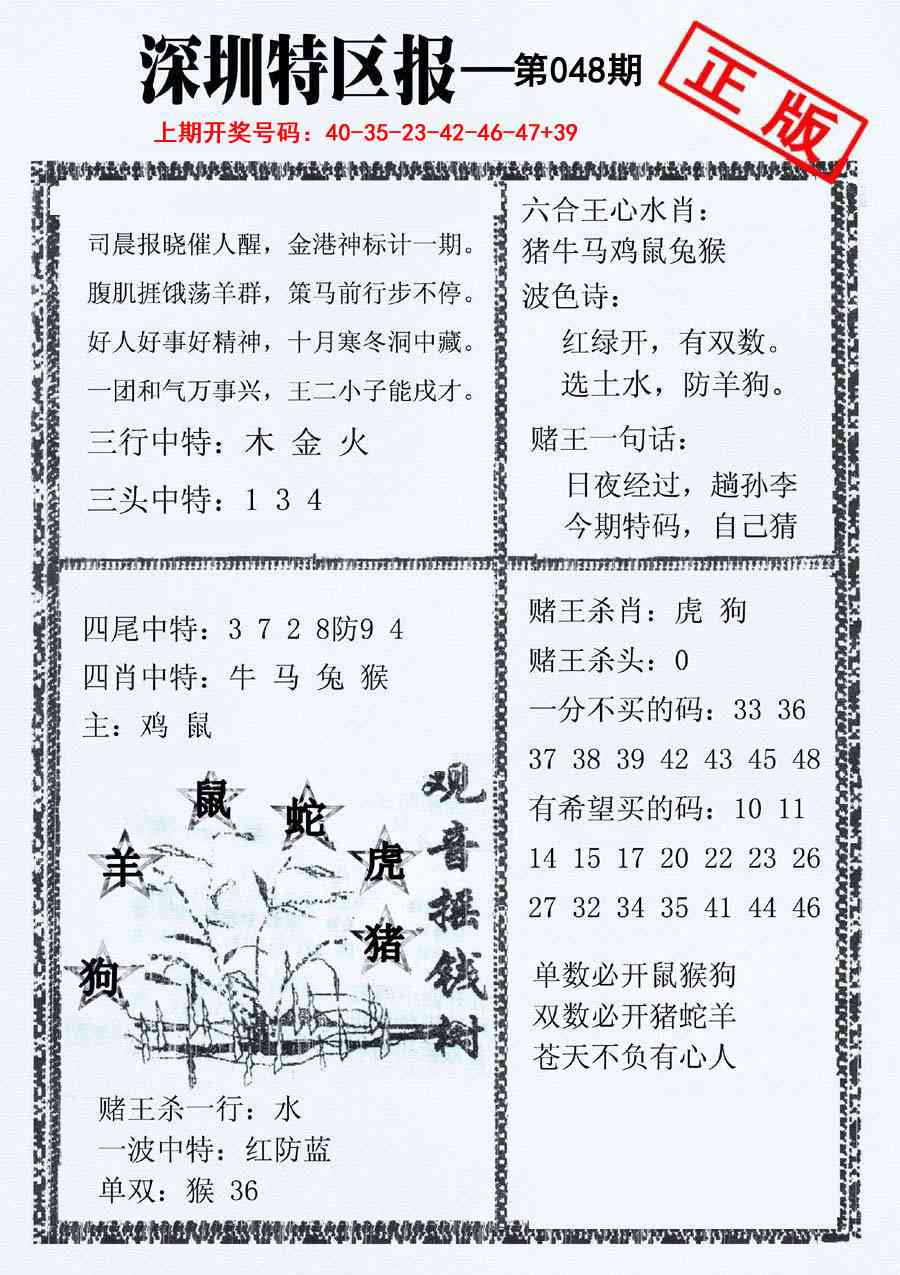 深圳特区报—第048期
正版
上期开奖号码：40-35-23-42-46-47+39
司晨报晓催人醒，金港神标计一期。
腹肌捱饿荡羊群，策马前行步不停。
好人好事好精神，十月寒冬洞中藏。
一团和气万事兴，王二小子能戌才。
三行中特：木 金 火
三头中特：1 3 4
六合王心水肖：
猪牛马鸡鼠兔猴
波色诗：
红绿开，有双数。
选土水，防羊狗。
赌王一句话：
日夜经过，趟孙李
今期特码，自己猜
四尾中特：3 7 2 8防9 4
四肖中特：牛 马 兔 猴
主：鸡 鼠
鼠
蛇
羊
虎
猪
狗
观音摇钱树
赌王杀一行：水
一波中特：红防蓝
单双：猴 36
赌王杀肖：虎 狗
赌王杀头：0
一分不买的码：33 36
37 38 39 42 43 45 48
有希望买的码：10 11
14 15 17 20 22 23 26
27 32 34 35 41 44 46
单数必开鼠猴狗
双数必开猪蛇羊
苍天不负有心人